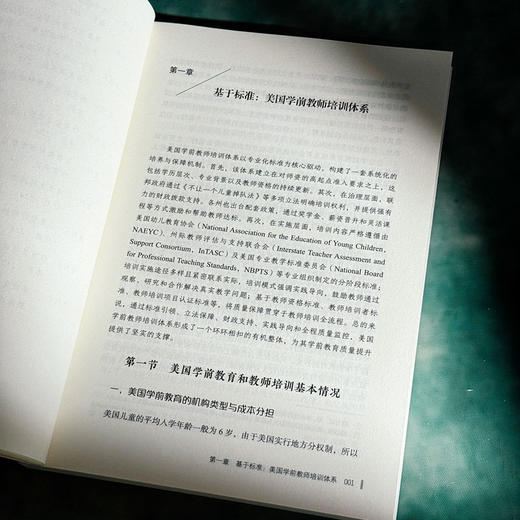 第一章
基于标准：美国学前教师培训体系
美国学前教师培训体系以专业化标准为核心驱动，构建了一套系统化的
培养与保障机制。首先，该体系建立在对师资的高起点准入要求之上，这
包括学历层次、专业背景以及教师资格的持续更新。其次，在治理层面，联
邦政府通过《不让一个儿童掉队法》等多项立法明确培训权利，并提供强有
力的财政拨款支持。各州也出台配套政策，通过奖学金、薪资晋升和灵活课
程等方式激励和帮助教师达标。再次，在实施层面，培训内容严格遵循由
美国幼儿教育协会（National Association for the Education of Young Children,
NAEYC）、州际教师评估与支持联合会（Interstate Teacher Assessment and
Support Consortium, InTASC）及美国专业教学标准委员会（National Board
for Professional Teaching Standards, NBPTS）等专业组织制定的分阶段标准；
培训实施途径多样且紧密联系实际，培训模式强调实践导向，鼓励教师通过
观察、研究和合作解决真实教学问题；基于教师资格标准、教师培训者标
准、教师培训项目认证标准等，将质量保障贯穿于教师培训全流程。总的来
说，通过标准引领、立法保障、财政支持、实践导向和全程质量监控，美国
学前教师培训体系形成了一个环环相扣的有机整体，为其学前教育质量提升
提供了坚实的支撑。
第一节 美国学前教育和教师培训基本情况
一、美国学前教育的机构类型与成本分担
美国儿童的平均入学年龄一般为 6 岁。由于美国实行地方分权制，所以
第一章 基于标准：美国学前教师培训体系 001